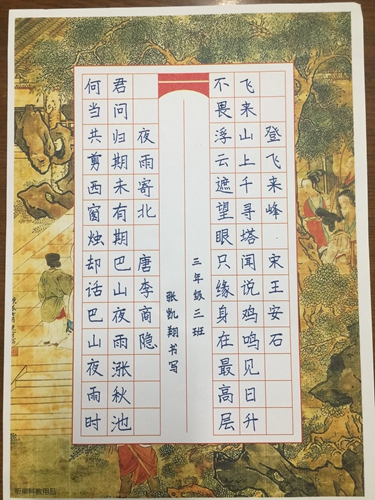 登飞来峰 宋王安石
飞来山上千寻塔闻说鸡鸣见日升
不畏浮云遮望眼只缘身在最高层
三年级三班
张凯翔书写
夜雨寄北 唐李商隐
君问归期未有期巴山夜雨涨秋池
何当共剪西窗烛却话巴山夜雨时